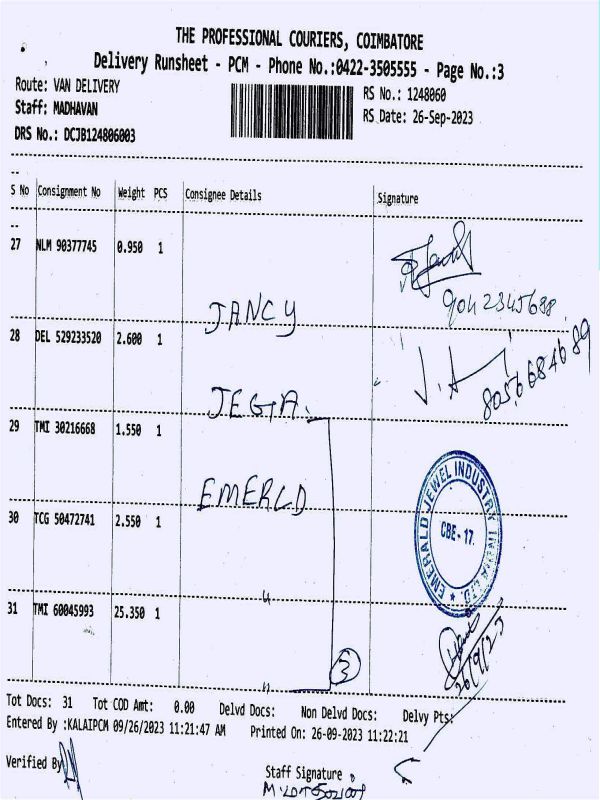 THE PROFESSIONAL COURIERS, COIMBATORE
Delivery Runsheet - PCM - Phone No.:0422-3505555 - Page No.:3
Route: VAN DELIVERY RS No.: 1248060
Staff: MADHAVAN RS Date: 26-Sep-2023
DRS No.: DCJB124806003
S No Consignment No Weight PCS Consignee Details Signature
27 NLM 90377745 0.950 1
JANCY 9042345688
28 DEL 529233520 2.600 1
JEGA. 8056684689
29 TMI 30216668 1.550 1
EMERLD
30 TCG 50472741 2.550 1
EMERALD JEWEL INDUSTRY INDIA LTD.
CBE - 17.
〃
31 TMI 60045993 25.350 1
26/9/23
3
〃
Tot Docs: 31 Tot COD Amt: 0.00 Delvd Docs: Non Delvd Docs: Delvy Pts:
Entered By :KALAIPCM 09/26/2023 11:21:47 AM Printed On: 26-09-2023 11:22:21
Verified By
Staff Signature